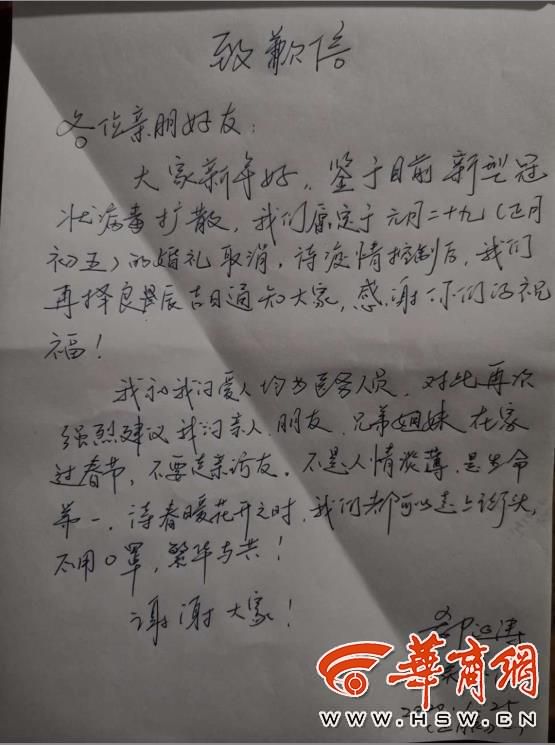 致歉信
各位亲朋好友:
大家新年好,鉴于目前新型冠
状病毒扩散,我们原定于元月二十九(正月
初五)的婚礼取消,待疫情控制后,我们
再择良辰吉日通知大家,感谢你们的祝
福!
我和我的爱人均为医务人员,对此再次
强烈建议我的亲人、朋友、兄弟姐妹在家
过春节,不要走亲访友。不是人情淡薄,是生命
第一,待春暖花开之时,我们都可以走上街头,
不用口罩,繁华与共!
谢谢大家!
华商网
WWW.HSW.CN